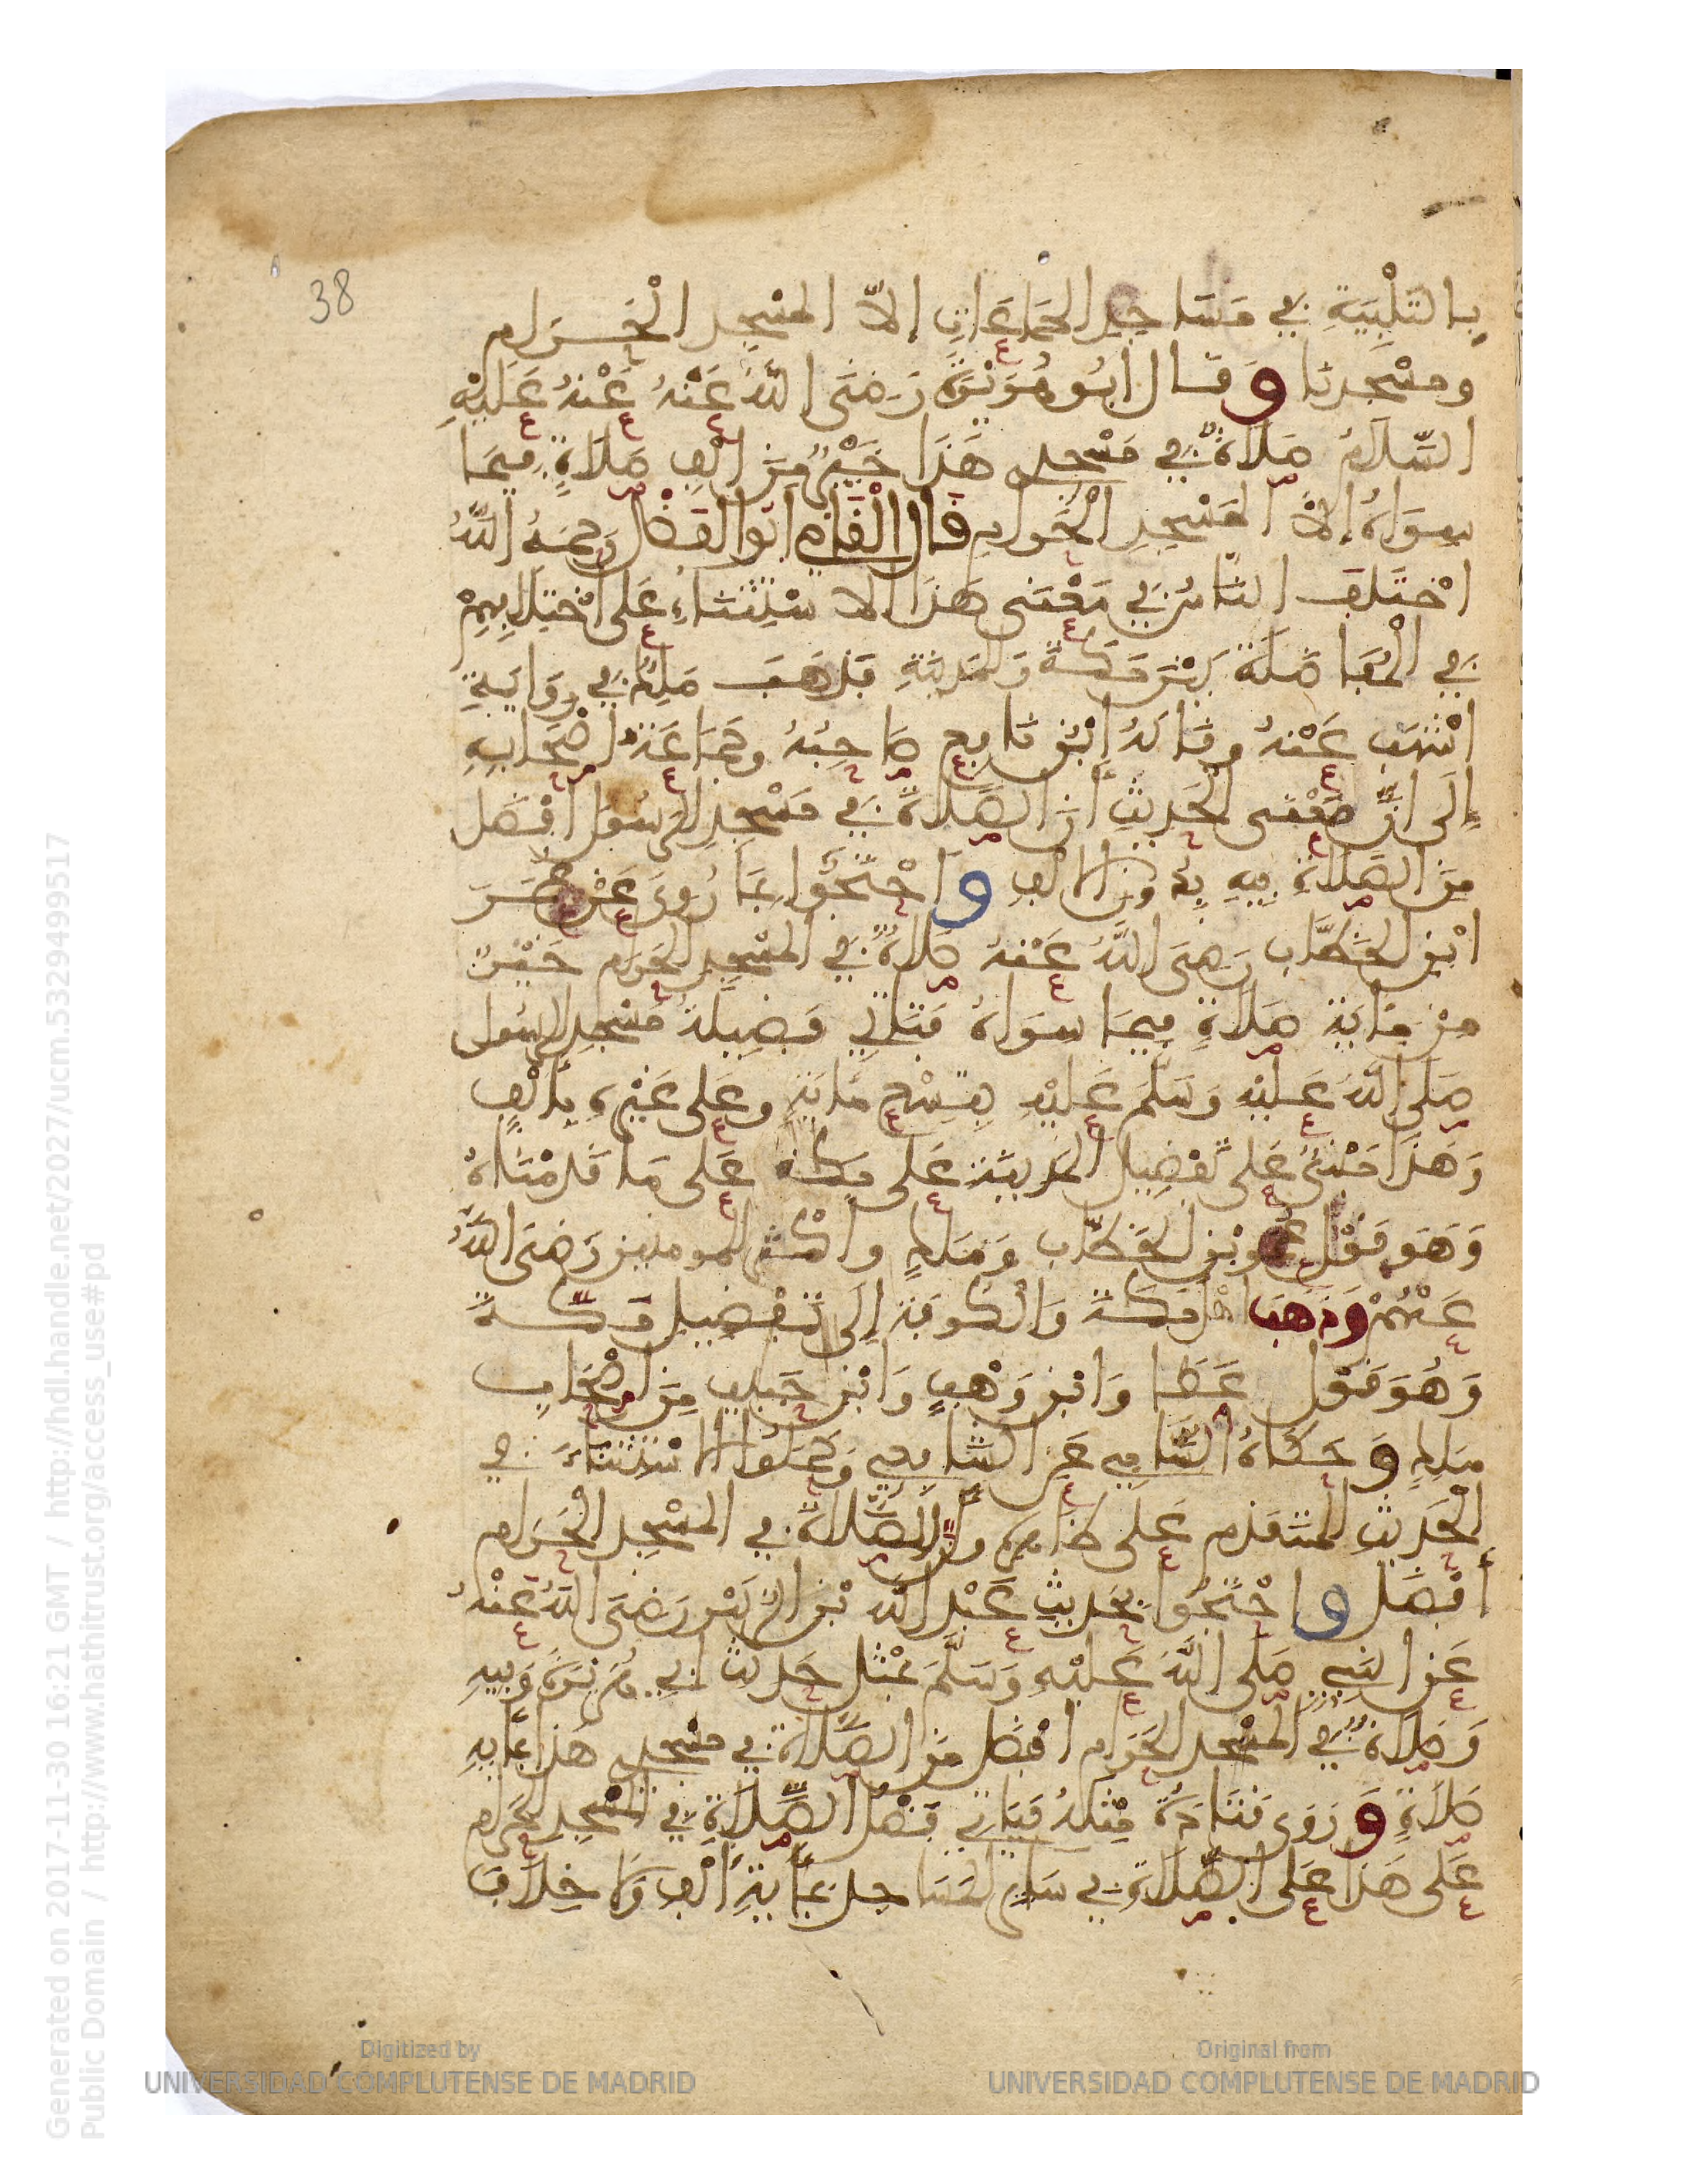 بالتَّلْبِيَةِ في مَسَاجِدِ الجَمَاعَاتِ إِلاَّ المَسْجِدِ الْحَرَامِ
ومسْجِدِنا وَقَال أَبُو هُرَيْرَةَ رَضِيَ اللَّهُ عَنْهُ عَنْهُ عَلَيْهِ
السَّلَامُ صَلَاةٌ في مَسْجِدِي هَذَا خَيْرٌ مِنْ أَلْفِ صَلَاةٍ فِيمَا
سِوَاهُ إِلاَّ المَسْجِدِ الْحَرَام قَالَ الْقَاضِي أَبُو الْفَضْلِ رَحِمَهُ اللَّهُ
اخْتَلَفَ النَّاسُ في مَعْنَى هَذَا الاسْتِثْنَاءِ عَلَى اخْتِلَافِهِمْ
في الْمُفَاضَلَةِ بَيْنَ مَكَّةَ وَالمَدِينَةِ فَذَهَبَ مَلِكٌ في رِوَايَةِ
أَشْهَبَ عَنْهُ وقَالَهُ ابْنُ نَافِعٍ صَاحِبُهُ وجَمَاعَةُ أَصْحَابِهِ
إِلَى أَنَّ مَعْنَى الحَدِيثِ أَنَّ الصَّلَاةَ في مَسْجِدِ الرَّسُولِ أَفْضَلُ
مِنَ الصَّلَاةِ فِيهِ بِدُونِ الأَلْفِ وَاحْتَجُّوا بِمَا رُوِيَ عَنْ عُمَرَ
ابْنِ الخَطَّابِ رَضِيَ اللَّهُ عَنْهُ صَلَاةٌ في المَسْجِدِ الحَرَامِ خَيْرٌ
مِنْ مِائَةِ صَلَاةٍ فِيمَا سِوَاهُ فَتَأْتِي فَضِيلَةُ مَسْجِدِ الرَّسُولِ
صَلَّى اللَّهُ عَلَيْهِ وَسَلَّمَ عَلَيْهِ بِتِسْعِ مَايَةٍ وعَلَى غَيْرِهِ بِأَلْفٍ
وَهَذَا مَبْنِيٌّ عَلَى تَفْضِيلِ المَدِينَةِ عَلَى مَكَّةَ عَلَى مَا قَدَّمْنَاهُ
وَهُوَ قَوْلُ عُمَرَ بْنِ الخَطَّابِ وَمَلِكٍ وأَكْثَرِ المدنيين رَضِيَ اللَّهُ
عَنْهُمْ وَذَهَبَ أَهْلُ مَكَّةَ وَالْكُوفَةِ إِلَى تَفْضِيلِ مَكَّةَ
وَهُوَ قَوْلُ عَطَا وَابْنِ وَهْبٍ وَابْنِ حَبِيبٍ مِنْ أَصْحَابِ
مَلِكٍ وَحَكَاهُ السَّاجِي عَنِ الشَّافِعِي وَحَمَلُوا الاسْتِثْنَاءَ في
الْحَدِيثِ المتَقَدِّمِ عَلَى ظَاهِرِهِ وأَنَّ الصَّلَاةَ في المَسْجِدِ الْحَرَامِ
أَفْضَلُ وَاحْتَجُّوا بِحَدِيثِ عَبْدِ اللَّهِ بْنِ الزُّبَيْرِ رَضِيَ اللَّهُ عَنْهُ
عَنِ النَّبِيِّ صَلَّى اللَّهُ عَلَيْهِ وَسَلَّمَ بِمِثْلِ حَدِيثِ أَبِي هُرَيْرَةَ وَفِيهِ
وَصَلَاةٌ في المَسْجِدِ الحَرَامِ أَفْضَلُ مِنَ الصَّلَاةِ في مَسْجِدِي هَذَا بِمِايَةِ
صَلَاةٍ وَرَوَى قَتَادَةُ مِثْلَهُ فَيَأْتِي فَضْلُ الصَّلَاةِ في المَسْجِدِ الحَرَامِ
عَلَى هَذَا عَلَى الصَّلَاةِ في سَائِرِ المَسَاجِدِ بِمِايَةِ أَلْفٍ وَلَا خِلَافَ
38
Digitized by
UNIVERSIDAD COMPLUTENSE DE MADRID
Original from
UNIVERSIDAD COMPLUTENSE DE MADRID
Generated on 2017-11-30 16:21 GMT / http://hdl.handle.net/2027/ucm.5329499517
Public Domain / http://www.hathitrust.org/access_use#pd